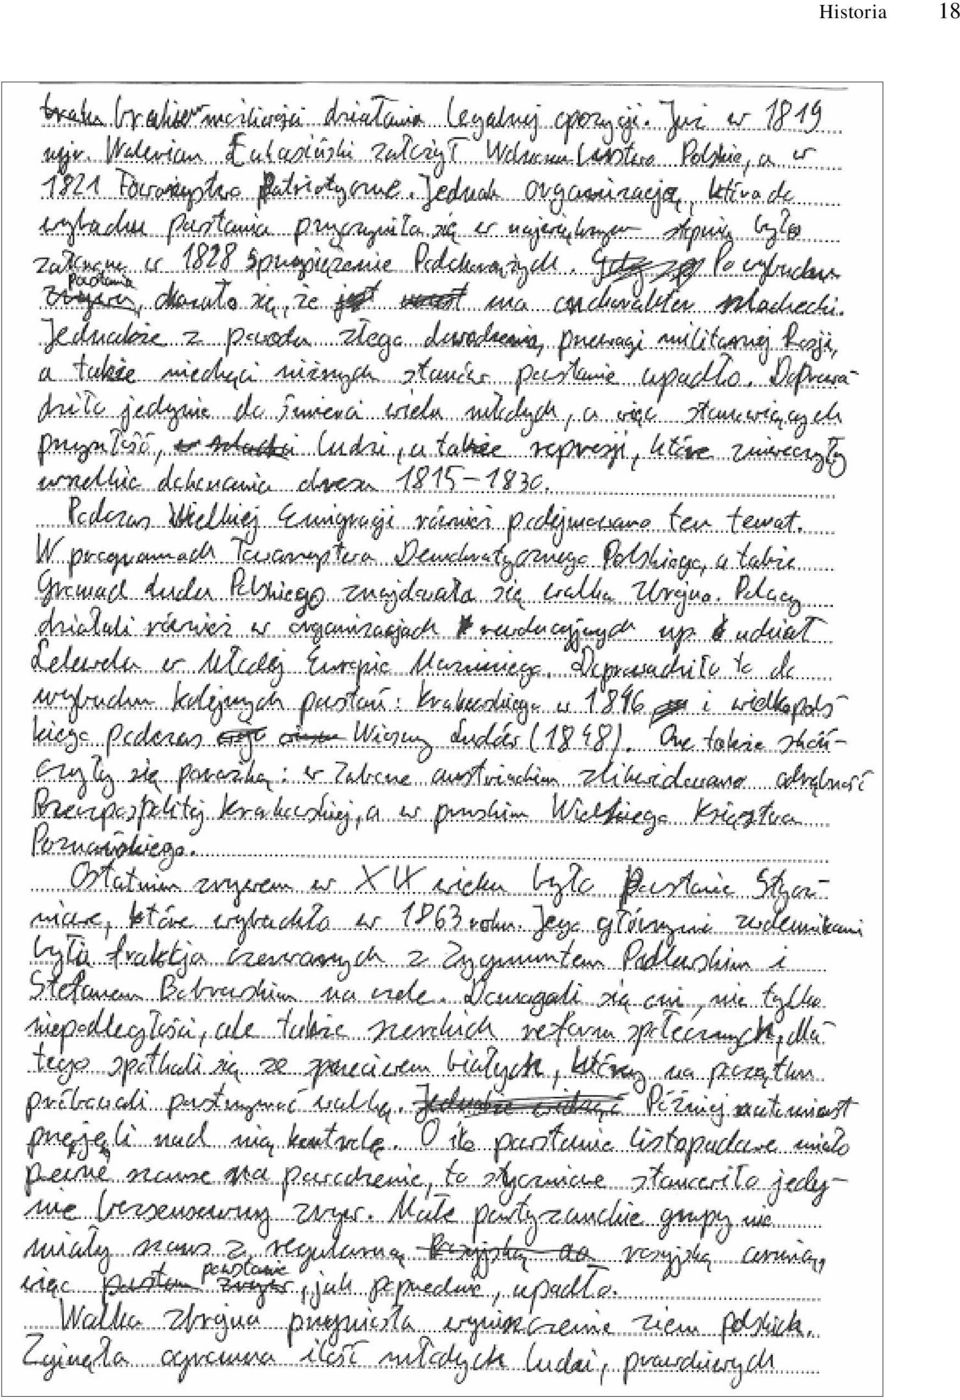 Historia 18
brak możliwości działania legalnej opozycji. Już w 1819
mjr. Walerian Łukasiński założył Wolnomularstwo Polskie, a w
1821 Towarzystwo Patriotyczne. Jednak organizacją, która do
wybuchu powstania przyczyniła się w największym stopniu było
założone w 1828 Sprzysiężenie Podchorążych. Po wybuchu
powstania, okazało się, że ma on charakter szlachecki.
Jednakże z powodu złego dowodzenia, przewagi militarnej Rosji,
a także niechęci niższych stanów powstanie upadło. Doprowa-
dziło jedynie do śmierci wielu młodych, a więc stanowiących
przyszłość, ludzi, a także represji, które zniweczyły
wszelkie dokonania okresu 1815-1830.
Podczas Wielkiej Emigracji również podejmowano ten temat.
W programach Towarzystwa Demokratycznego Polskiego, a także
Gromad Ludu Polskiego znajdowała się walka zbrojna. Polacy
działali również w organizacjach rewolucyjnych np. udział
Lelewela w Młodej Europie Mazziniego. Doprowadziło to do
wybuchu kolejnych powstań: krakowskiego w 1846 i wielkopols-
kiego podczas Wiosny Ludów (1848). One także skoń-
czyły się porażką: w zaborze austriackim zlikwidowano odrębność
Rzeczpospolitej Krakowskiej, a w pruskim Wielkiego Księstwa
Poznańskiego.
Ostatnim zrywem w XIX wieku było Powstanie Stycz-
niowe, które wybuchło w 1863 roku. Jego głównymi zwolennikami
była frakcja czerwonych z Zygmuntem Padlewskim i
Stefanem Bobrowskim na czele. Domagali się oni, nie tylko
niepodległości, ale także szerokich reform społecznych, dla-
tego spotkali się ze sprzeciwem białych, którzy na początku
próbowali powstrzymać walkę. Później natomiast
przejęli nad nią kontrolę. O ile powstanie listopadowe miało
pewne szanse na powodzenie, to styczniowe stanowiło jedy-
nie bezsensowny zryw. Małe partyzanckie grupy nie
miały szans z regularną rosyjską armią,
więc powstanie, jak poprzednie, upadło.
Walka zbrojna przyniosła wyniszczenie ziem polskich.
Zginęła ogromna ilość młodych ludzi, prawdziwych